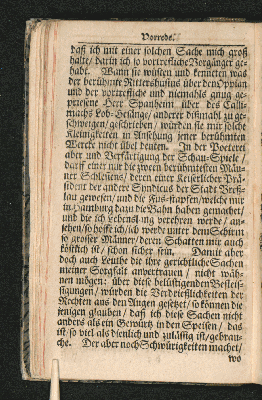 Vorrede.
daß ich mit einer solchen Sache mich groß
halte/ darin ich so vortrefliche Vorgänger ge-
habt. Wann sie wüsten und kenneten was
der berühmte Rittershusius über den Oppian
und der vortrefliche und niemahls gnug ge-
priesene Herr Spanheim über des Calli-
machs Lob-Gesänge/ anderer dißmahl zu ge-
schweigen/ geschrieben/ würden sie mir solche
Kleinigkeiten in Ansehung jener berühmten
Wercke nicht übel deuten. In der Poeterei
aber und Verfärtigung der Schau-Spiele/
darff einer nur die zween berühmtesten Män-
ner Schlesiens/ deren einer Keiserlicher Prä-
sident der andere Syndicus der Stadt Breß-
lau gewesen/ und die Fus-stapfen/ welche mir
in Hamburg dazu die Bahn haben gemachet/
und die ich lebenslang verehren werde/ an-
sehen/ so hoffe ich/ ich werde unter dem Schirm
so grosser Männer/ deren Schatten mir auch
köstlich ist/ schon sicher sein. Damit aber
doch auch Leuthe die ihre gerichtliche Sachen
meiner Sorgfalt anvertrauen/ nicht wäh-
nen mögen: über diese belüstigenden Befleis-
sigungen/ würden die Verdrießlichkeiten der
Rechten aus den Augen gesetzet/ so können die
jenigen glauben/ daß ich diese Sachen nicht
anders als ein Gewürtz in den Speisen/ das
ist/ so viel als dienlich und zulässig ist/ gebrau-
che. Der aber noch Schwürigkeiten machet/
wo